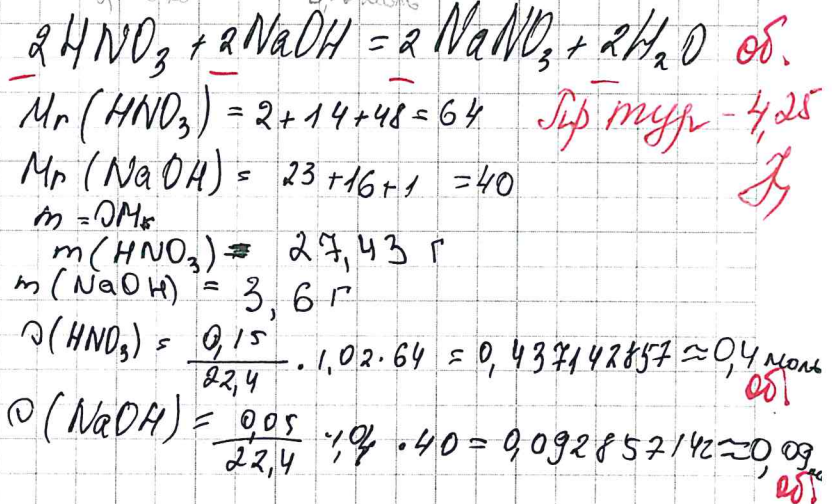 2HNO₃ + 2NaOH = 2 NaNO₃ + 2H₂O об.
Mr (HNO₃) = 2+14+48=64 - 4,25
Mr (NaOH) = 23+16+1 =40
m = υM
m(HNO₃) = 27,43 г
m(NaOH) = 3,6 г
υ(HNO₃) = 0,15/22,4 · 1,02 · 64 = 0,437142857 ≈ 0,4 моль об
υ(NaOH) = 0,05/22,4 · 1,04 · 40 = 0,092857142 ≈ 0,09 об